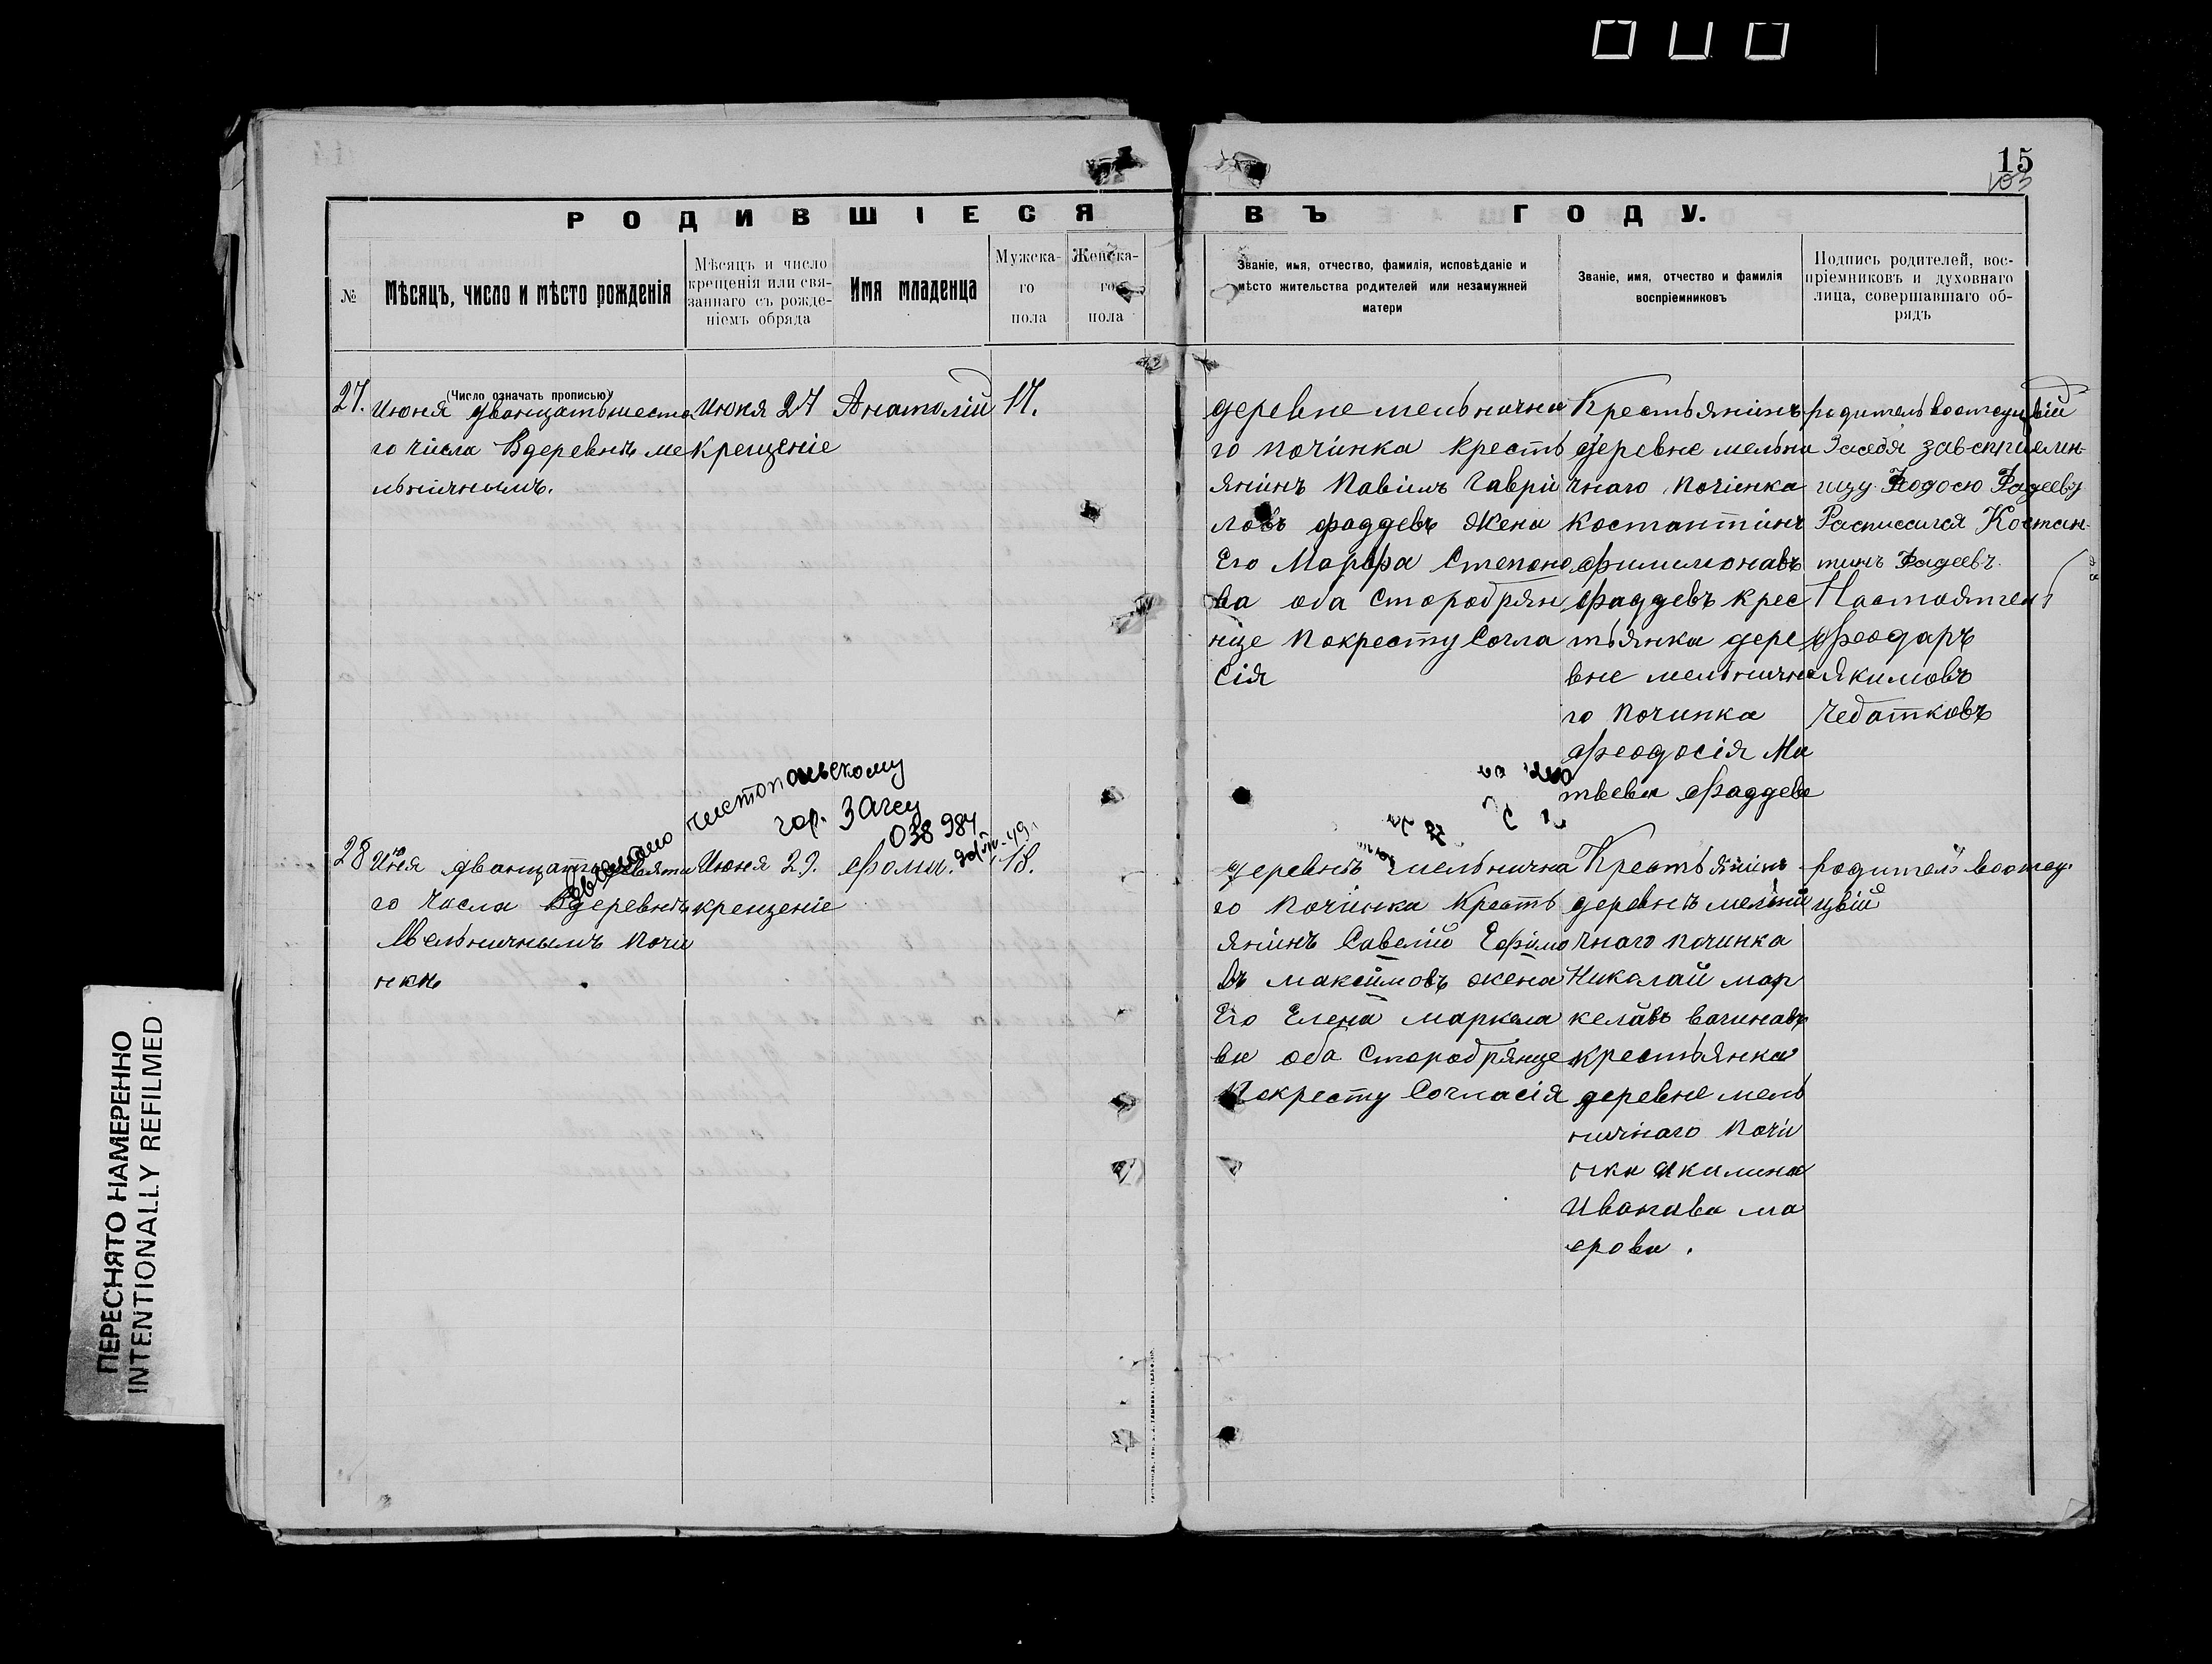 15
103
РОДИВШІЕСЯ ВЪ ГОДУ.
№
Мѣсяцъ, число и мѣсто рожденія
Мѣсяцъ и число
крещенія или свя-
заннаго съ рожде-
ніемъ обряда
Имя младенца
Мужска-
го
пола
Женска-
го
пола
Званіе, имя, отчество, фамилія, исповѣданіе и
мѣсто жительства родителей или незамужней
матери
Званіе, имя, отчество и фамилія
воспріемниковъ
Подпись родителей, вос-
пріемниковъ и духовнаго
лица, совершавшаго об-
рядъ
(Число означать прописью)
27.
Июня двацатьшеста
го числа Вдеревнѣ ме
льничнымъ.
Июня 27
Крещеніе
Анатолій
17.
деревне мельнична
го починка кресть
янинъ Павілъ Гаври
ловъ фаддевъ Жена
Его Марфа Степано
ва оба Старобрян
нце Покресту Согла
сія
Крестьянинъ
деревне мельни
чнаго Починка
Костантинъ
филимонавъ
фаддевъ крес
тьянка дере
вне мельнична
го Починка
феодосія Ма
твева фаддева
родитель
Засебя
Феодосю Фадееву
Расписался Костан-
тинъ Фадеевъ.
Настоятель
феодаръ
Якимовъ
Чебатковъ
Выслано Чистопальскому
гор. Загсу
038984
28
Июня двацатьдевята
го Числа Вдеревнѣ
Мельничнымъ почи
нки
Июня 29.
крещеніе
фома.
18.
деревнѣ мельнична
го починка Кресть
янинъ Савелій Ефимо
въ максимовъ жена
Его Елена маркела
ва оба Старобрянце
Покресту Согласія
Крестьянинъ
деревнѣ мельни
чнаго починка
Николай мар
келавъ вачинавъ
крестьянка
деревне мель
ничнаго Почи
нка акилина
Иванава ма
ерова.
родитель
ПЕРЕСНЯТО НАМЕРЕННО
INTENTIONALLY REFILMED